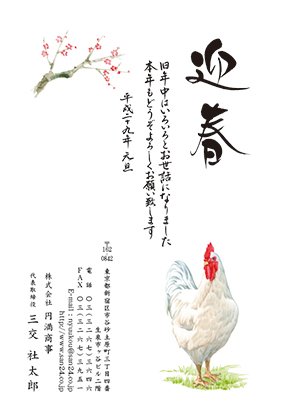 迎春
旧年中はいろいろとお世話になりました
本年もどうぞよろしくお願い致します
平成二十九年 元旦
〒162-0842
東京都新宿区市谷砂土原町三丁目四番
生東市ヶ谷ビル二階
電話 〇三(三二六七)三六四六
FAX 〇三(三二六七)三九五一
E-mail : ryuukou@san24.co.jp
http://www.san24.co.jp
株式会社 円満商事
代表取締役 三交 社太郎